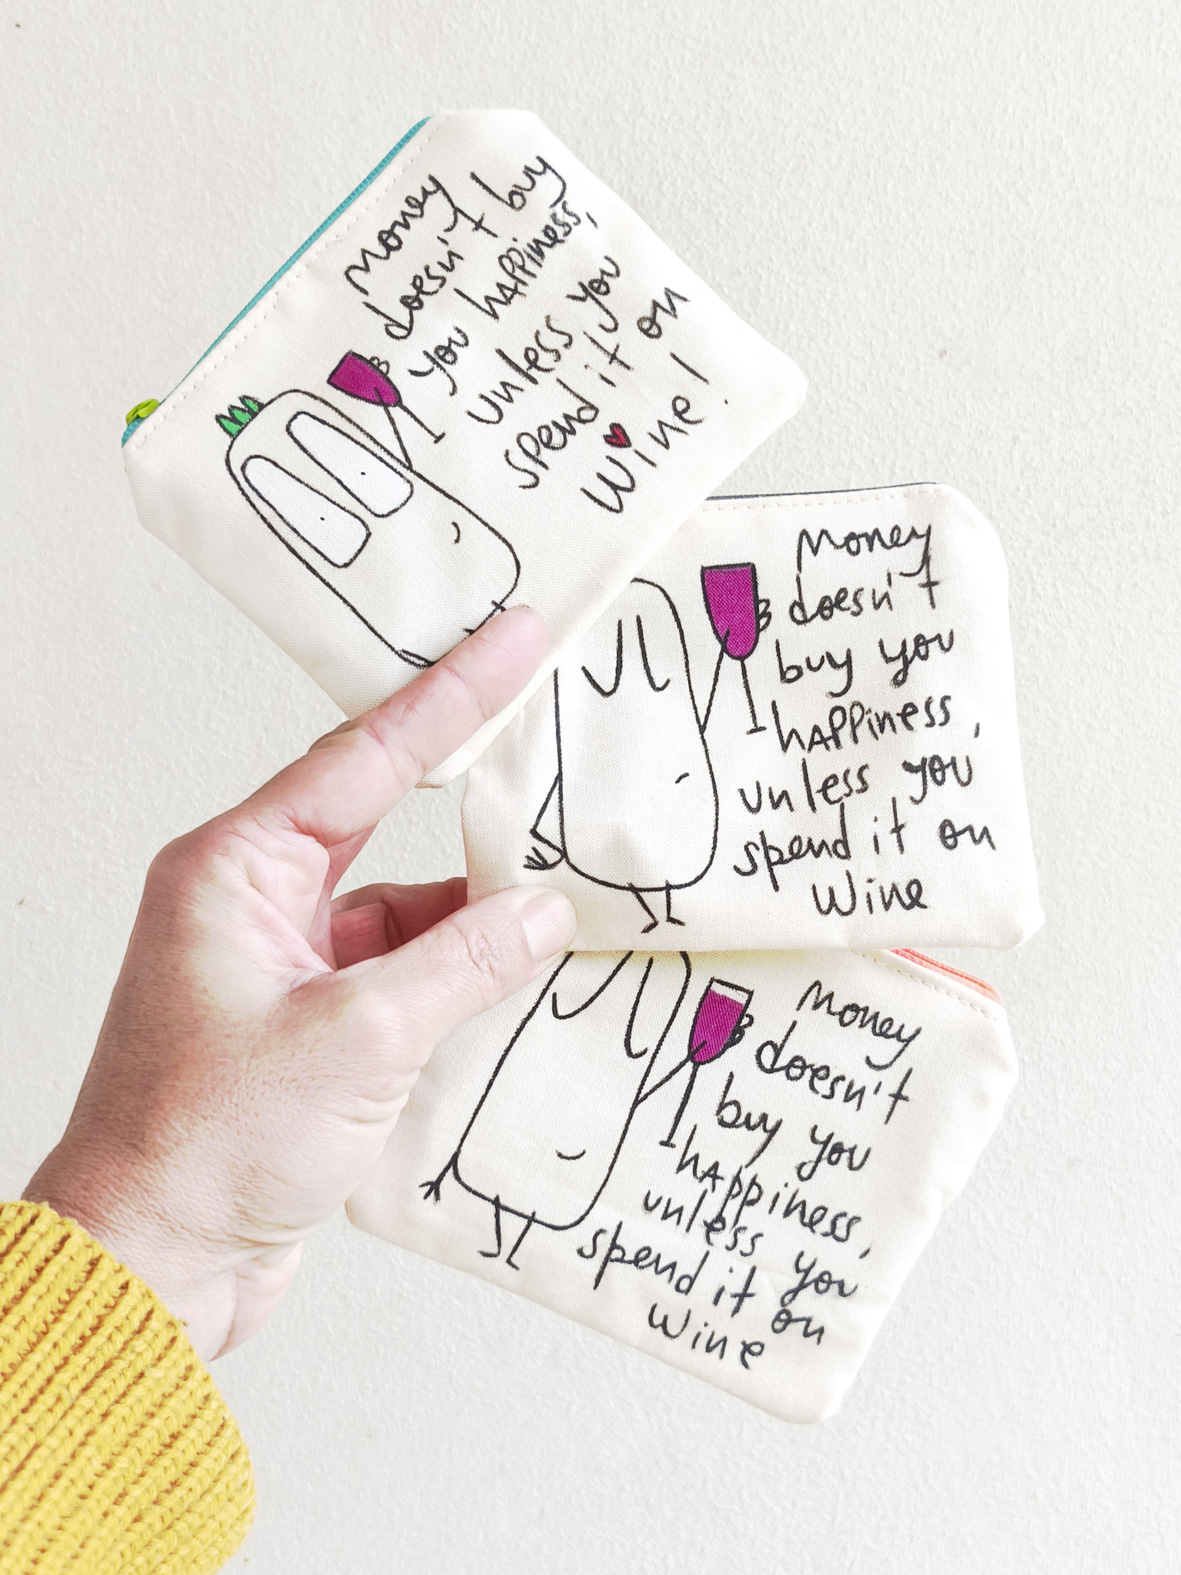 Money
doesn't buy
you hAppiness,
unless you
spend it on
wine!
Money
doesn't
buy you
hAppiness,
unless you
spend it on
Wine
Money
doesn't
buy you
hAppiness,
unless you
spend it on
Wine